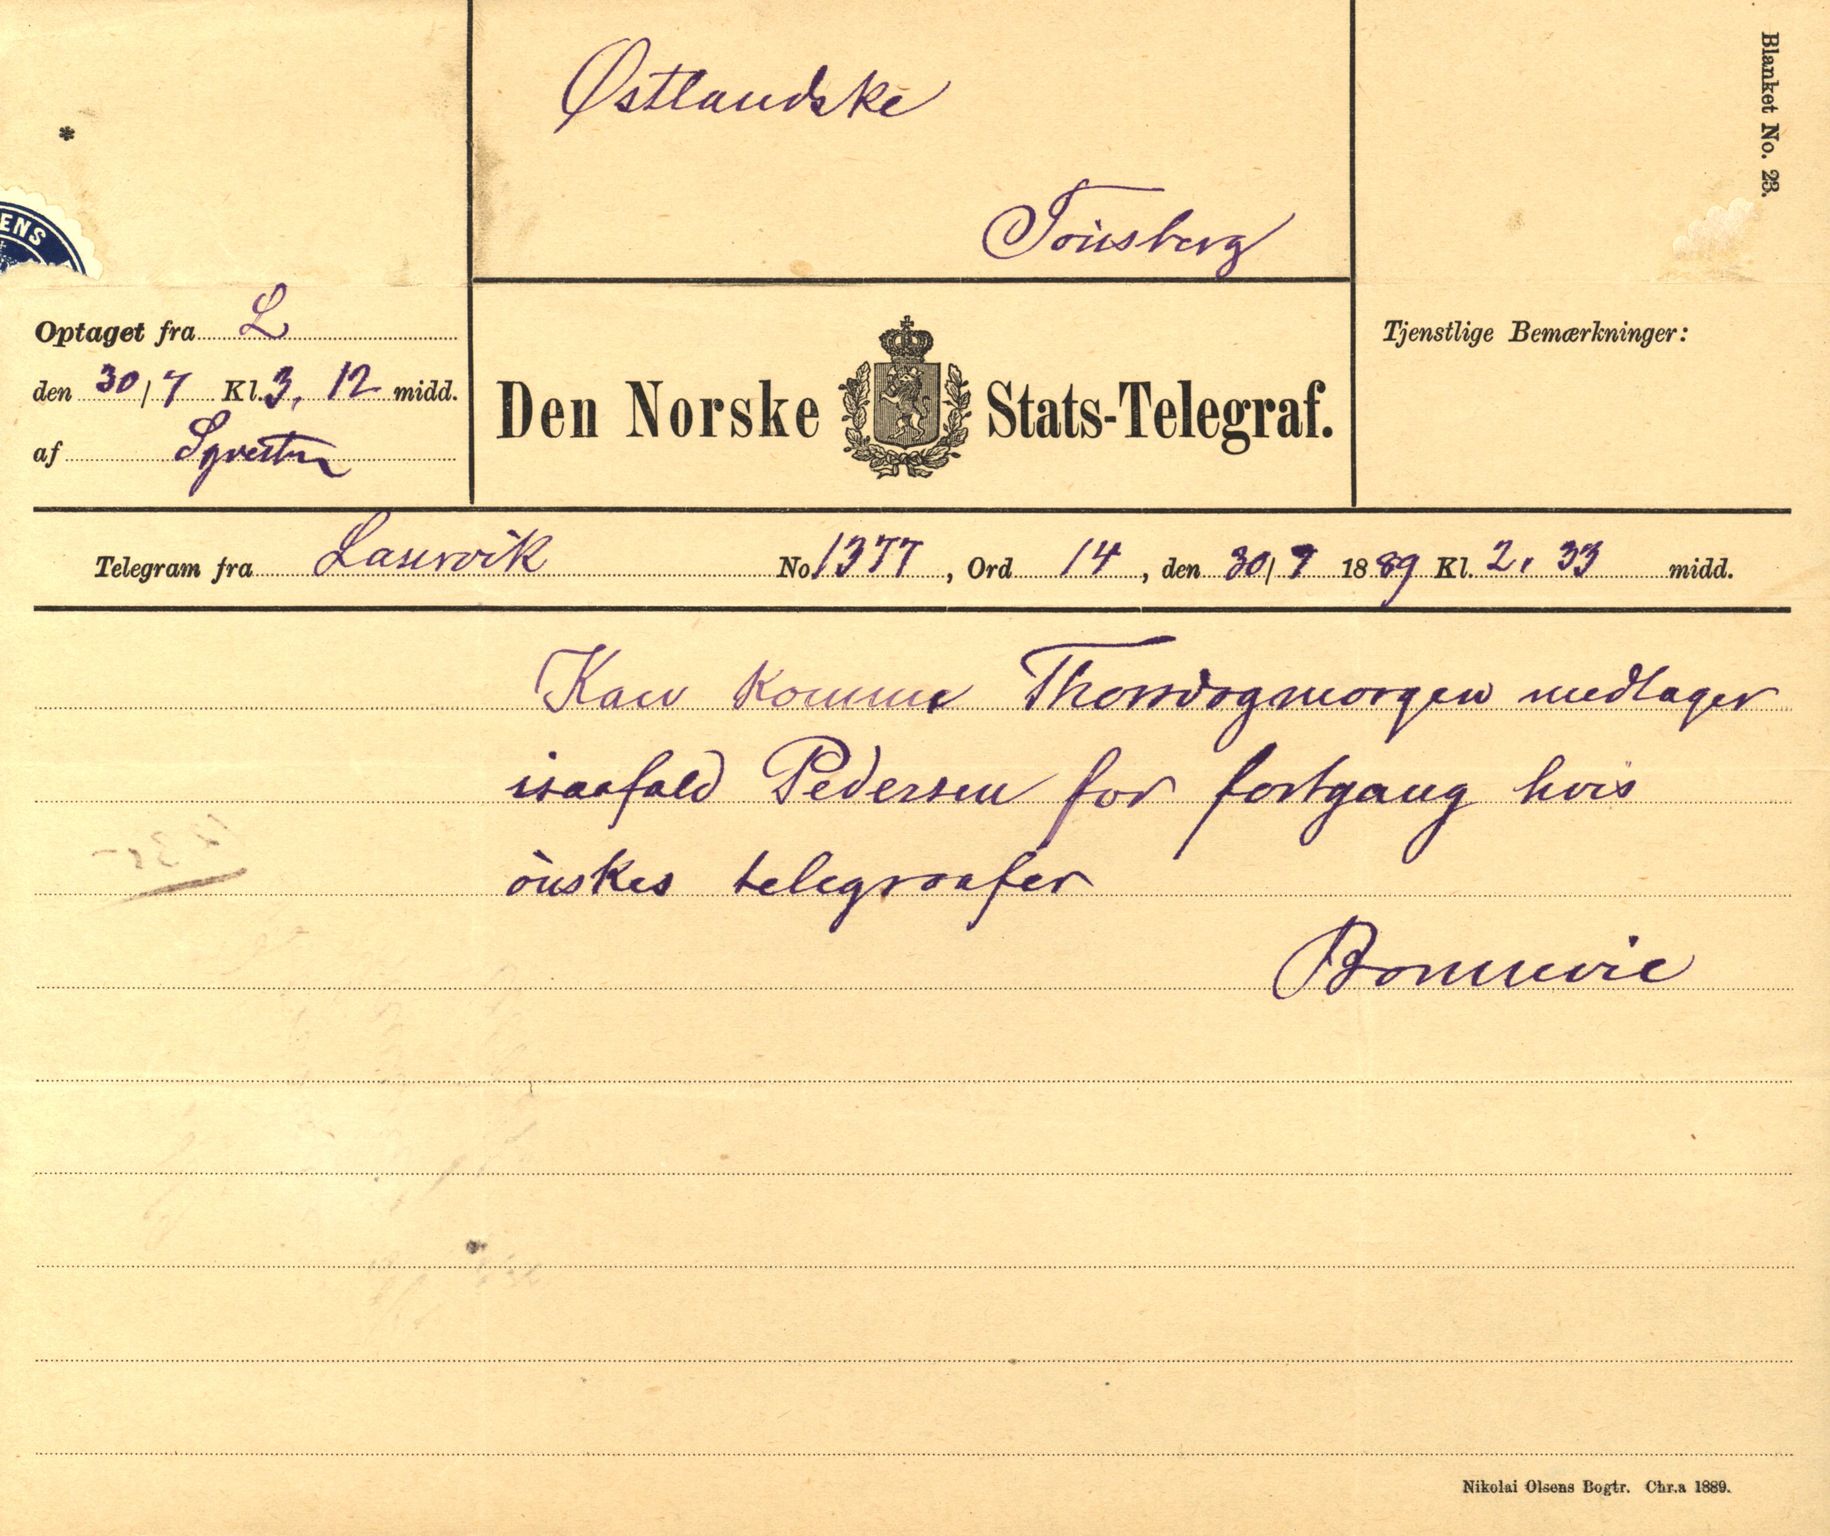 Østlandske
Tönsberg
Blanket No. 23.
*
ENS
Optaget fra L
den 30/7 Kl. 3, 12 midd.
af
Den Norske Stats-Telegraf.
Tjenstlige Bemærkninger:
Telegram fra Laurvik No 1377, Ord 14, den 30/7 1889 Kl. 2, 33 midd.
Kan komme Thorsdagmorgen medtager
isaafald Pedersen for fortgang hvis
önskes telegraafer
Bonnevie
Nikolai Olsens Bogtr. Chr.a 1889.